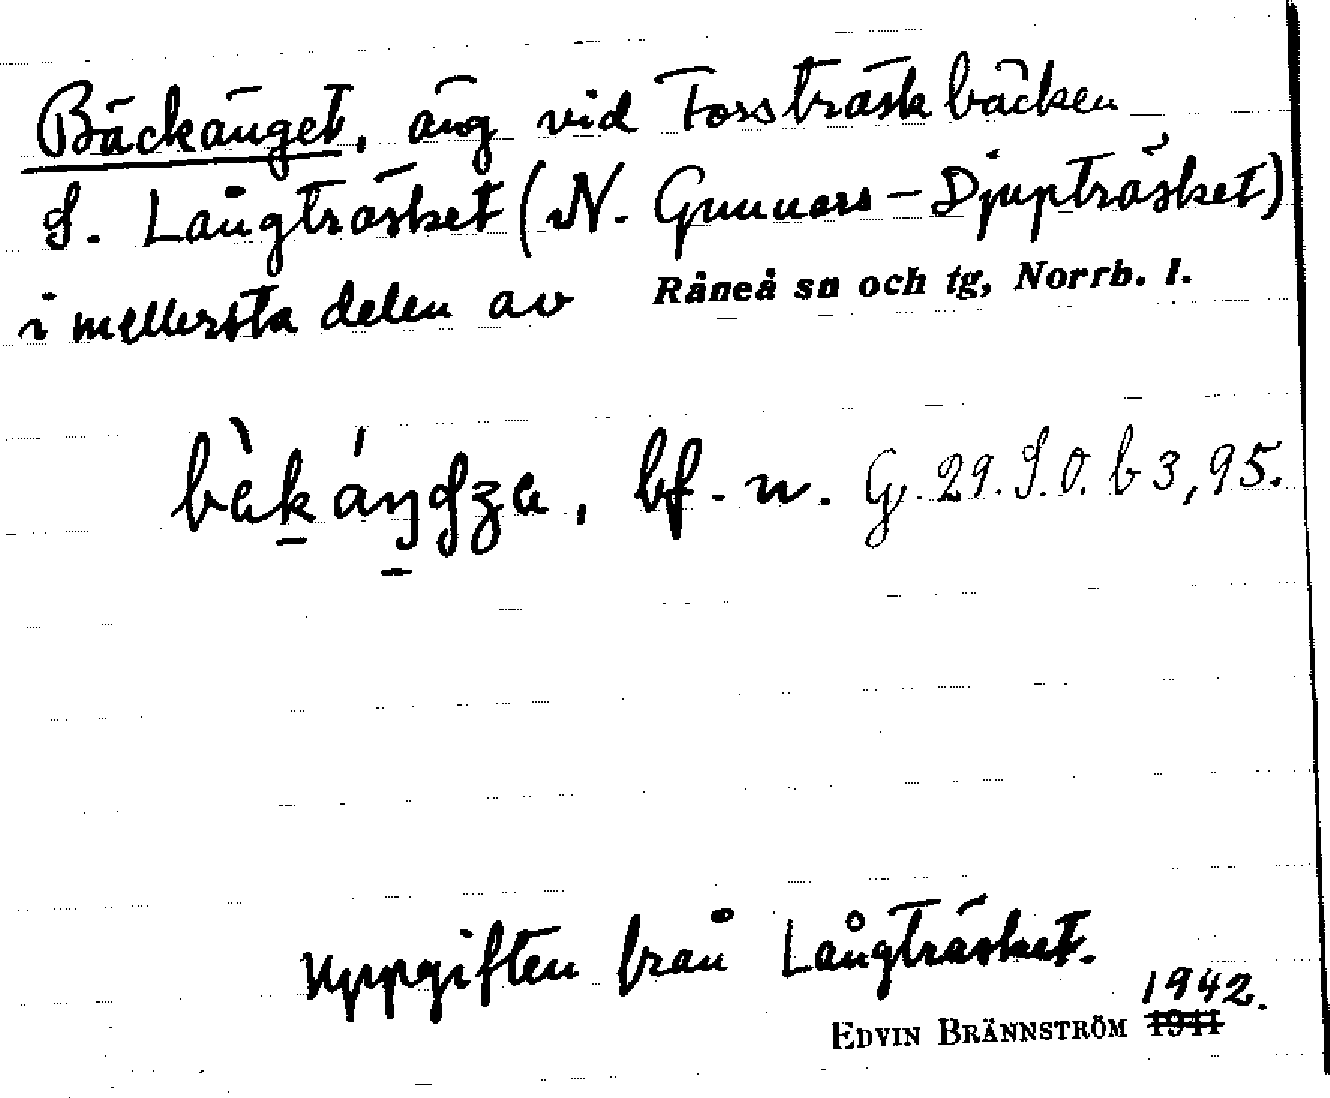 Bäckänget, äng vid Fossträskbäcken
S. Långträsket (N. Gunnars-Djupträsket)
i mellersta delen av Råneå sn och tg, Norrb. l.
bf. n. G. 29. S.O. b 3, 95.
Uppgiften från Långträsket.
1942.
EDVIN BRÄNNSTRÖM 1941